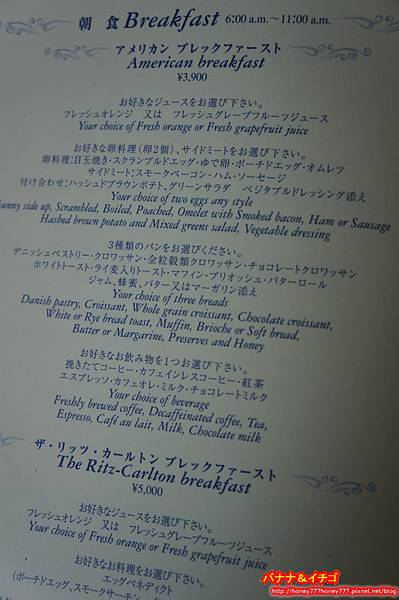 朝 食 Breakfast 6:00 a.m.～11:00 a.m.
アメリカン ブレックファースト
American breakfast
¥3,900
お好きなジュースをお選び下さい。
フレッシュオレンジ 又は フレッシュグレープフルーツジュース
Your choice of Fresh orange or Fresh grapefruit juice
お好きな卵料理（卵2個）、サイドミートをお選び下さい。
卵料理：目玉焼き・スクランブルドエッグ・ゆで卵・ポーチドエッグ・オムレツ
サイドミート：スモークベーコン・ハム・ソーセージ
付け合わせ：ハッシュドブラウンポテト、グリーンサラダ ベジタブルドレッシング添え
Your choice of two eggs any style
Sunny side up, Scrambled, Boiled, Poached, Omelet with Smoked bacon, Ham or Sausage
Hashed brown potato and Mixed greens salad, Vegetable dressing
3種類のパンをお選びください。
デニッシュペストリー・クロワッサン・全粒穀類クロワッサン・チョコレートクロワッサン
ホワイトトースト・ライ麦入りトースト・マフィン・ブリオッシュ・バターロール
ジャム、蜂蜜、バター又はマーガリン添え
Your choice of three breads
Danish pastry, Croissant, Whole grain croissant, Chocolate croissant,
White or Rye bread toast, Muffin, Brioche or Soft bread,
Butter or Margarine, Preserves and Honey
お好きなお飲み物を1つお選び下さい。
挽きたてコーヒー・カフェインレスコーヒー・紅茶
エスプレッソ・カフェオレ・ミルク・チョコレートミルク
Your choice of beverage
Freshly brewed coffee, Decaffeinated coffee, Tea,
Espresso, Café au lait, Milk, Chocolate milk
ザ・リッツ・カールトン ブレックファースト
The Ritz-Carlton breakfast
¥5,000
お好きなジュースをお選び下さい。
フレッシュオレンジ 又は フレッシュグレープフルーツジュース
Your choice of Fresh orange or Fresh grapefruit juice
お好きなお料理をお選び下さい。
エッグベネディクト
（ポーチドエッグ、スモークサーモン、
バナナ＆イチゴ
http://honey777honey777.pixnet.net/blog